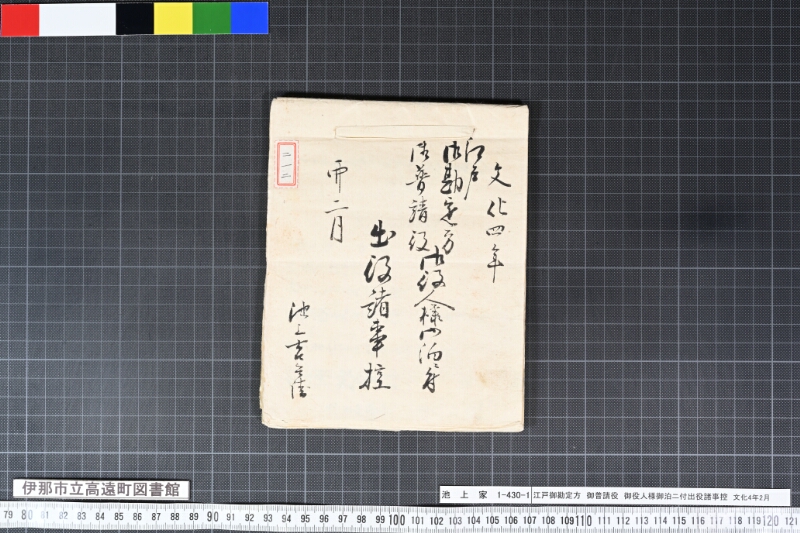 文化四年
江戸
御勘定方
御普請役
御役人様御泊ニ付
出役諸事控
卯二月
池上吉兵衛
二一二
伊那市立高遠町図書館
池上家 1-430-1 江戸御勘定方 御普請役 御役人様御泊ニ付出役諸事控 文化4年2月
79 80 81 82 83 84 85 86 87 88 89 90 91 92 93 94 95 96 97 98 99 100 101 102 103 104 105 106 107 108 109 110 111 112 113 114 115 116 117 118 119 120 121